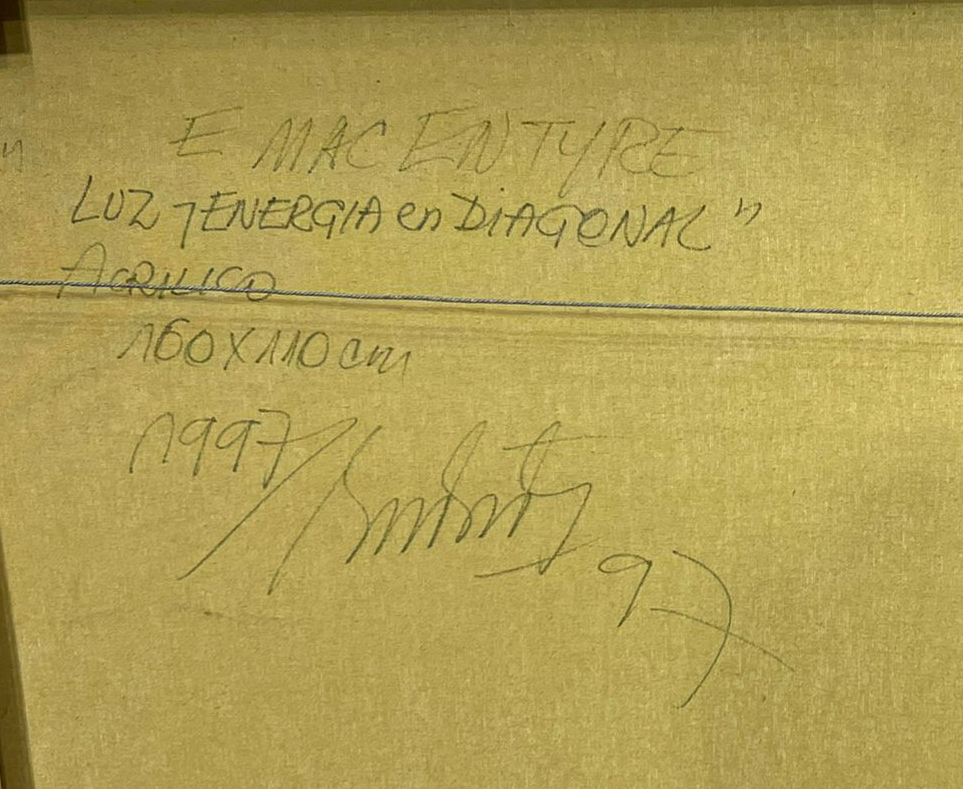 E MAC ENTYRE
"
LUZ y ENERGIA en DIAGONAL"
ACRILICO
160 X 110 cm
1997
97